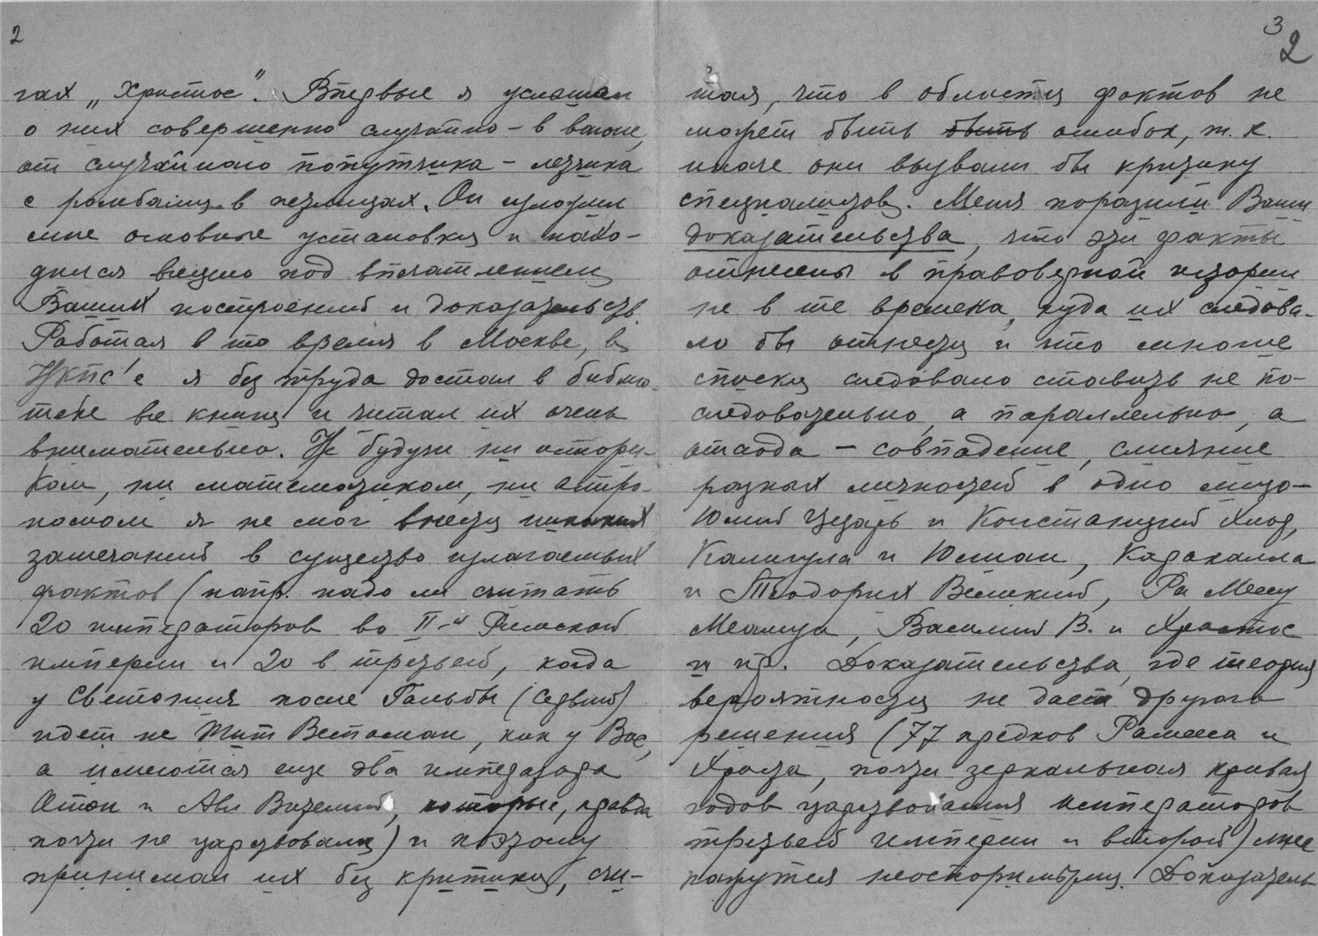 2
гах „Христос". Впервые я услышал
о них совершенно случайно – в вагоне,
от случайного попутчика – летчика
с ромбами в петлицах. Он изложил
мне основные установки и нахо-
дился видно под впечатлением
Ваших построений и доказательств.
Работая в то время в Москве, в
НКПС'е я без труда достал в библио-
теке все книги и читал их очень
внимательно. Не будучи ни истори-
ком, ни математиком, ни астро-
номом я не смог внести никаких
замечаний в существо излагаемых
фактов (напр. надо ли считать
20 императоров во II-й Римской
империи и 20 в третьей, когда
у Светония после Гальбы (седьмой)
идет не Тит Веспасиан, как у Вас,
а имеются еще два императора
Отон и Авл Вителий, которые, правда
почти не царствовали) и поэтому
принимал их без критики, счи-
3
2
тая, что в области фактов не
может быть быть ошибок, т. к.
иначе они вызвали бы критику
специалистов. Меня поразили Ваши
доказательства, что эти факты
отнесены в правоверной истории
не в те времена, куда их следова-
ло бы отнести и что многие
списки следовало ставить не по-
следовательно, а параллельно, а
отсюда – совпадение, слияние
разных личностей в одно лицо –
Юлий Цезарь и Констанций Хлор,
Калигула и Юлиан, Каракалла
и Теодорих Великий, Ра Мессу
Миамун, Василий В. и Христос
и пр. Доказательства, где теория
вероятности не дает другого
решения (77 предков Рамсеса и
Христа, почти зеркальная кривая
годов царствования императоров
третьей империи и второй) мне
кажутся неоспоримыми. Доказатель-